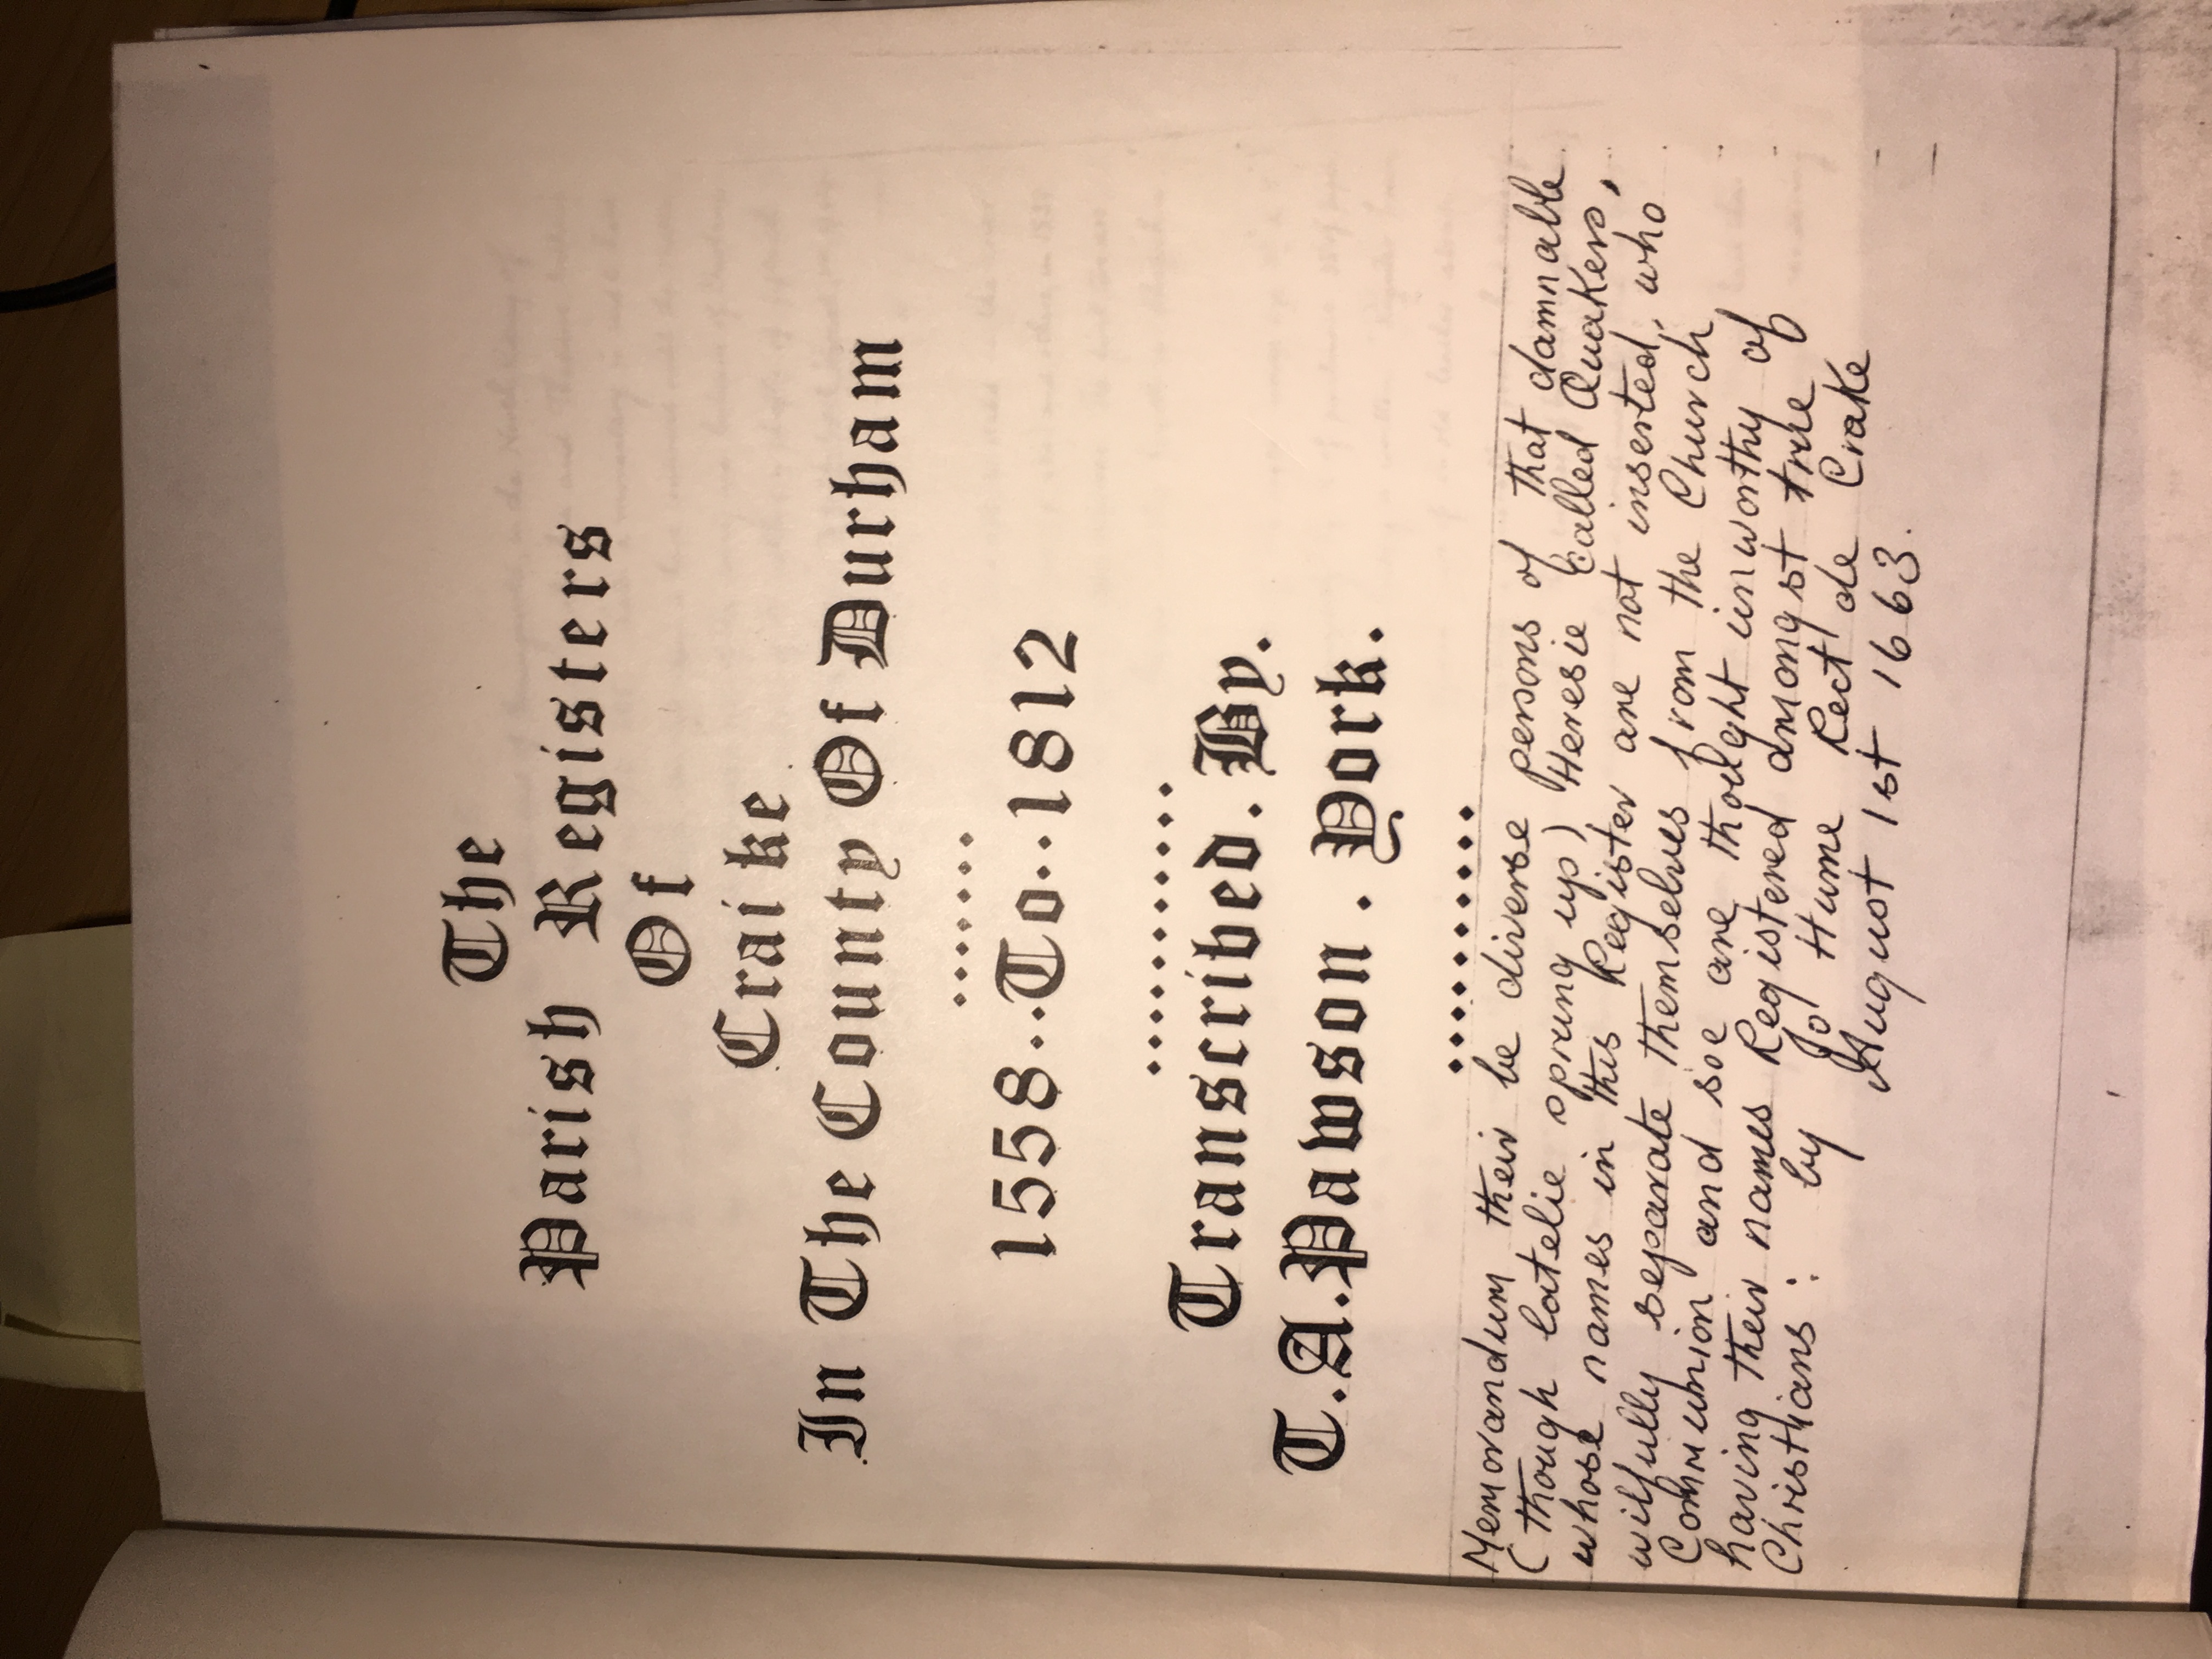 The
Parish Registers
Of
Craike
In The County Of Durham
......
1558..To..1812
..........
Transcribed. By.
T.A.Pawson . York.
..........
Memorandum their be diverse persons of that damnable
(though latelie sprung up) Heresie called Quakers,
whose names in this Register are not inserted, who
wilfully separate themselves from the Church
Communion and soe are thought unworthy of
having their names Registered amongst true
Christians: by Jo Hume Rect de Crake
August 1st 1663.